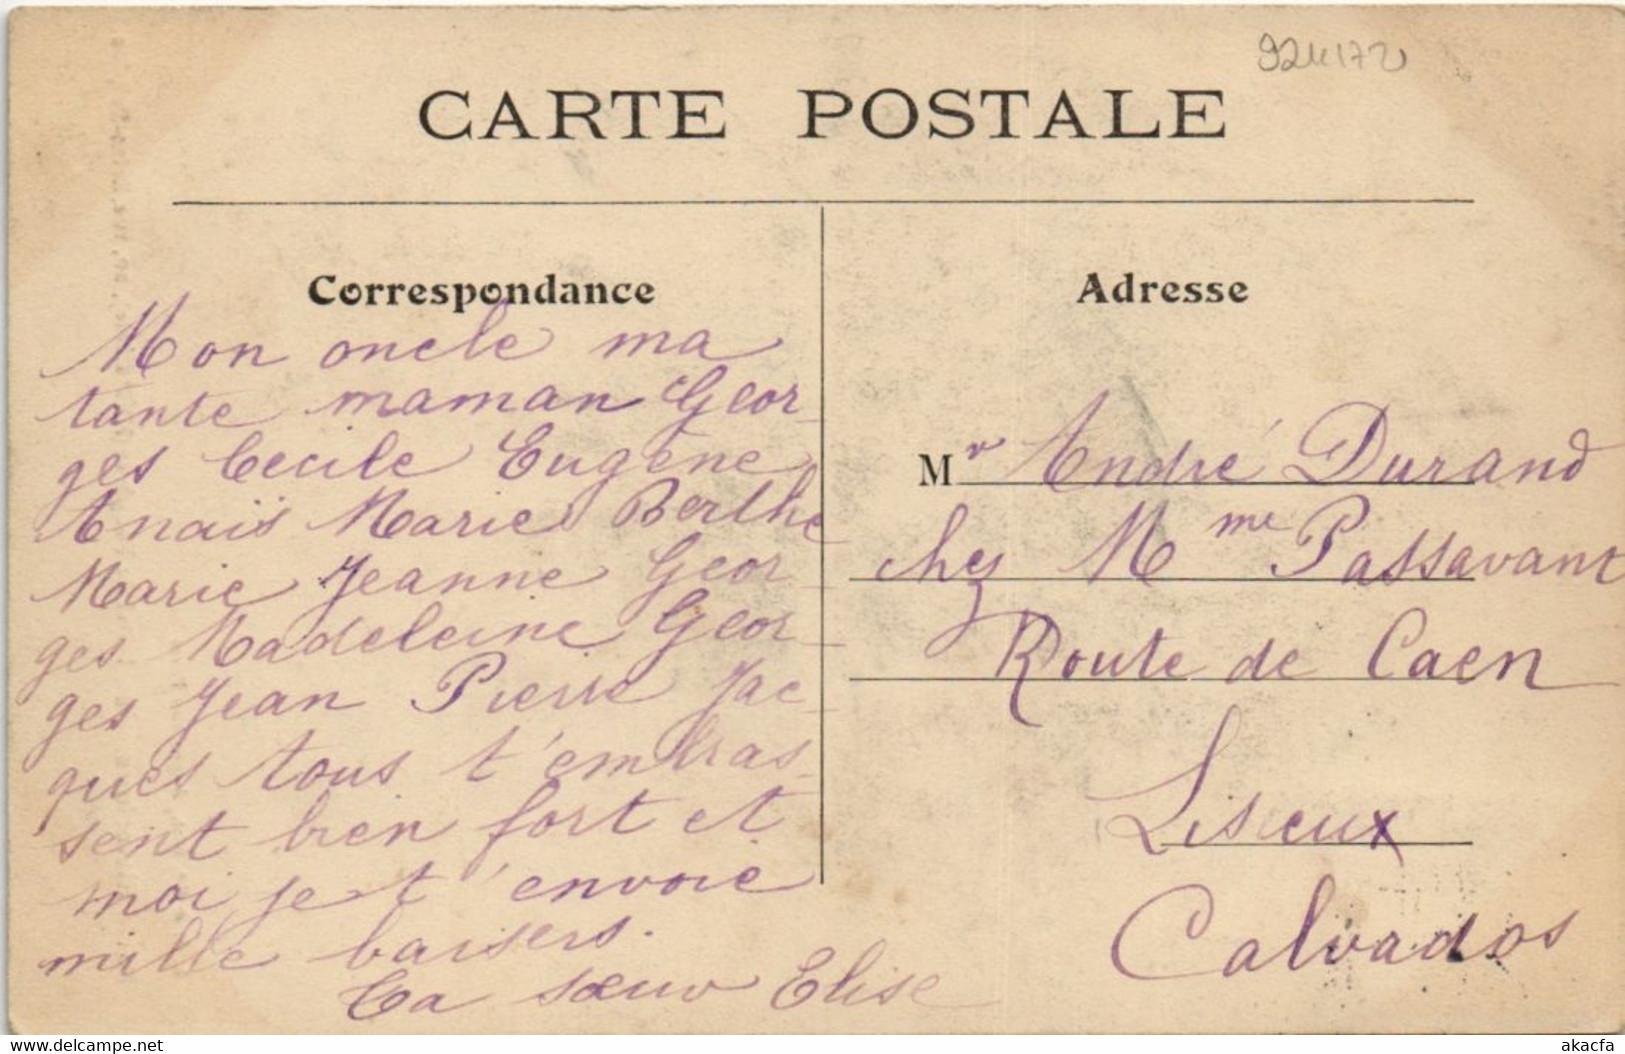 924172
CARTE POSTALE
Correspondance
Mon oncle ma
tante maman Geor-
ges Cecile Eugène
Anaïs Marie Berthe
Marie Jeanne Geor-
ges Madeleine Geor-
ges Jean Pierre Jac-
ques tous t'embras-
sent bien fort et
moi je t'envoie
mille baisers.
Ta sœur Elise
Adresse
Mr André Durand
chez Mme Passavant
Route de Caen
Lisieux
Calvados
www.delcampe.net
akacfa